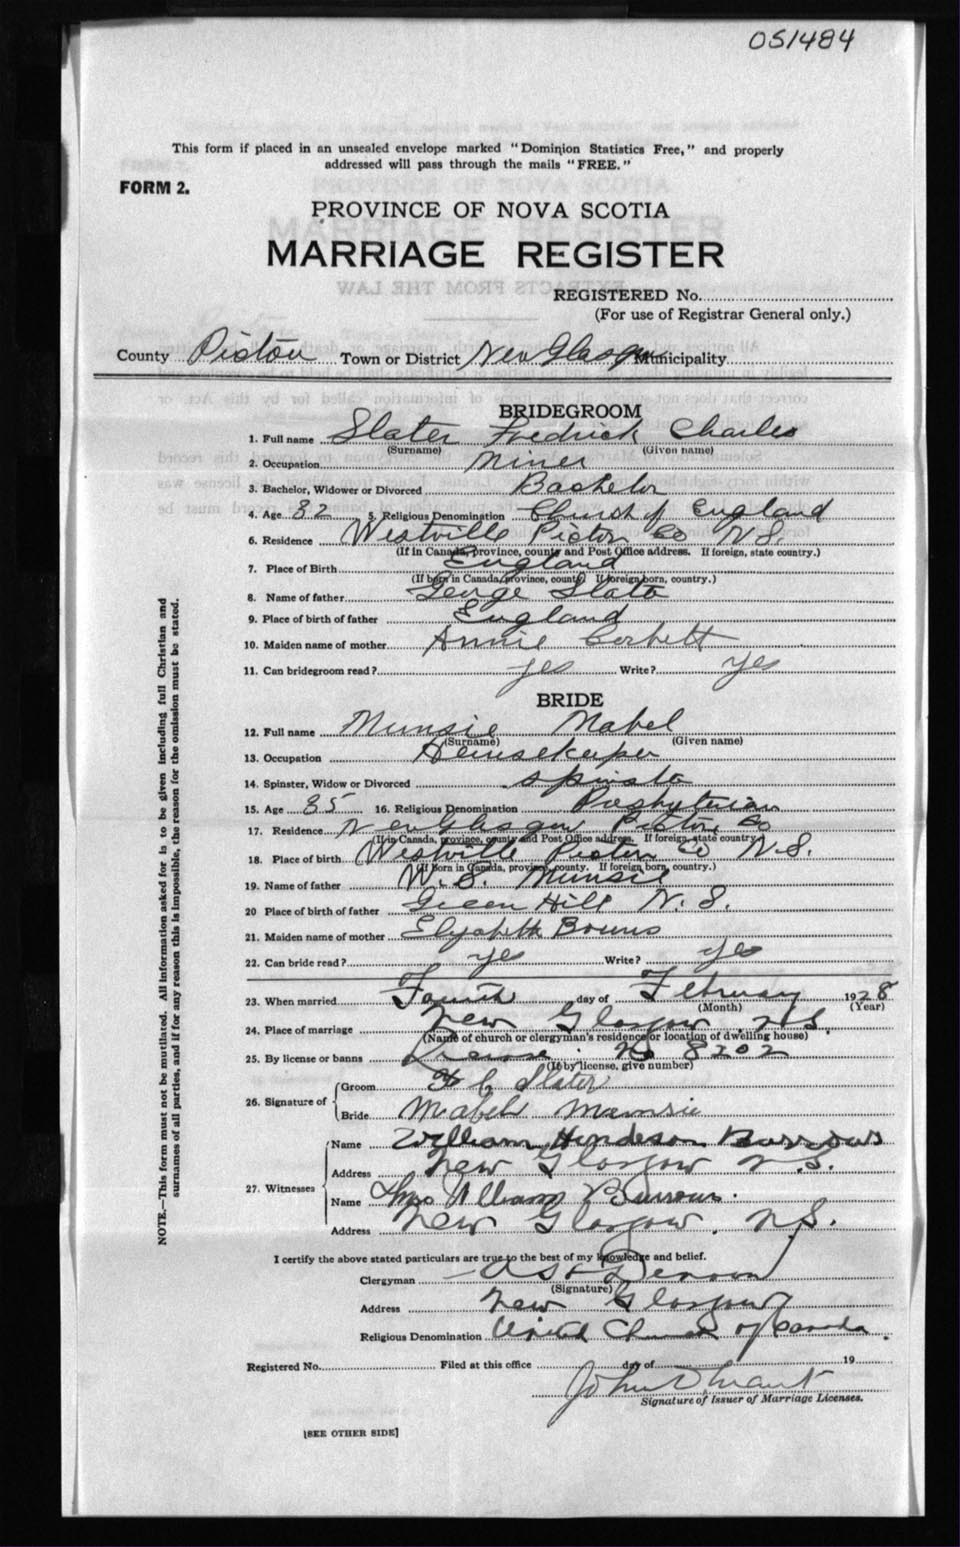 051484
This form if placed in an unsealed envelope marked "Dominion Statistics Free," and properly
addressed will pass through the mails "FREE."
FORM 2.
PROVINCE OF NOVA SCOTIA
MARRIAGE REGISTER
EXTRACTS FROM THE LAW
REGISTERED No.
(For use of Registrar General only.)
County Pictou Town or District New Glasgow Municipality
BRIDEGROOM
1. Full name Slater Fredrick Charles
(Surname) (Given name)
2. Occupation Miner
3. Bachelor, Widower or Divorced Bachelor
4. Age 32 5. Religious Denomination Church of England
6. Residence Westville Pictou Co N.S.
(If in Canada, province, county and Post Office address. If foreign, state country.)
7. Place of Birth England
(If born in Canada, province, county. If foreign born, country.)
8. Name of father George Slater
9. Place of birth of father England
10. Maiden name of mother Annie Corbett
11. Can bridegroom read? yes Write? yes
BRIDE
12. Full name Munsie Mabel
(Surname) (Given name)
13. Occupation Housekeeper
14. Spinster, Widow or Divorced spinster
15. Age 35 16. Religious Denomination Presbyterian
17. Residence New Glasgow Pictou Co
(If in Canada, province, county and Post Office address. If foreign, state country.)
18. Place of birth Westville Pictou Co N.S.
(If born in Canada, province, county. If foreign born, country.)
19. Name of father W. S. Munsie
20 Place of birth of father Green Hill N. S.
21. Maiden name of mother Elizabeth
22. Can bride read? yes Write? yes
23. When married Fourth day of February 1928
(Month) (Year)
24. Place of marriage New Glasgow N.S.
(Name of church or clergyman's residence or location of dwelling house)
25. By license or banns License No 8202
(If by license, give number)
26. Signature of
Groom F C Slater
Bride Mabel Munsie
27. Witnesses
Name William Henderson Burrows
Address New Glasgow N.S.
Name Mrs William Burrows.
Address New Glasgow, N.S.
I certify the above stated particulars are true to the best of my knowledge and belief.
Clergyman
(Signature)
Address New Glasgow
Religious Denomination United Church of Canada.
Registered No. Filed at this office day of 19
John D Grant
Signature of Issuer of Marriage Licenses.
[SEE OTHER SIDE]
NOTE.—This form must not be mutilated. All information asked for is to be given including full Christian and
surnames of all parties, and if for any reason this is impossible, the reason for the omission must be stated.